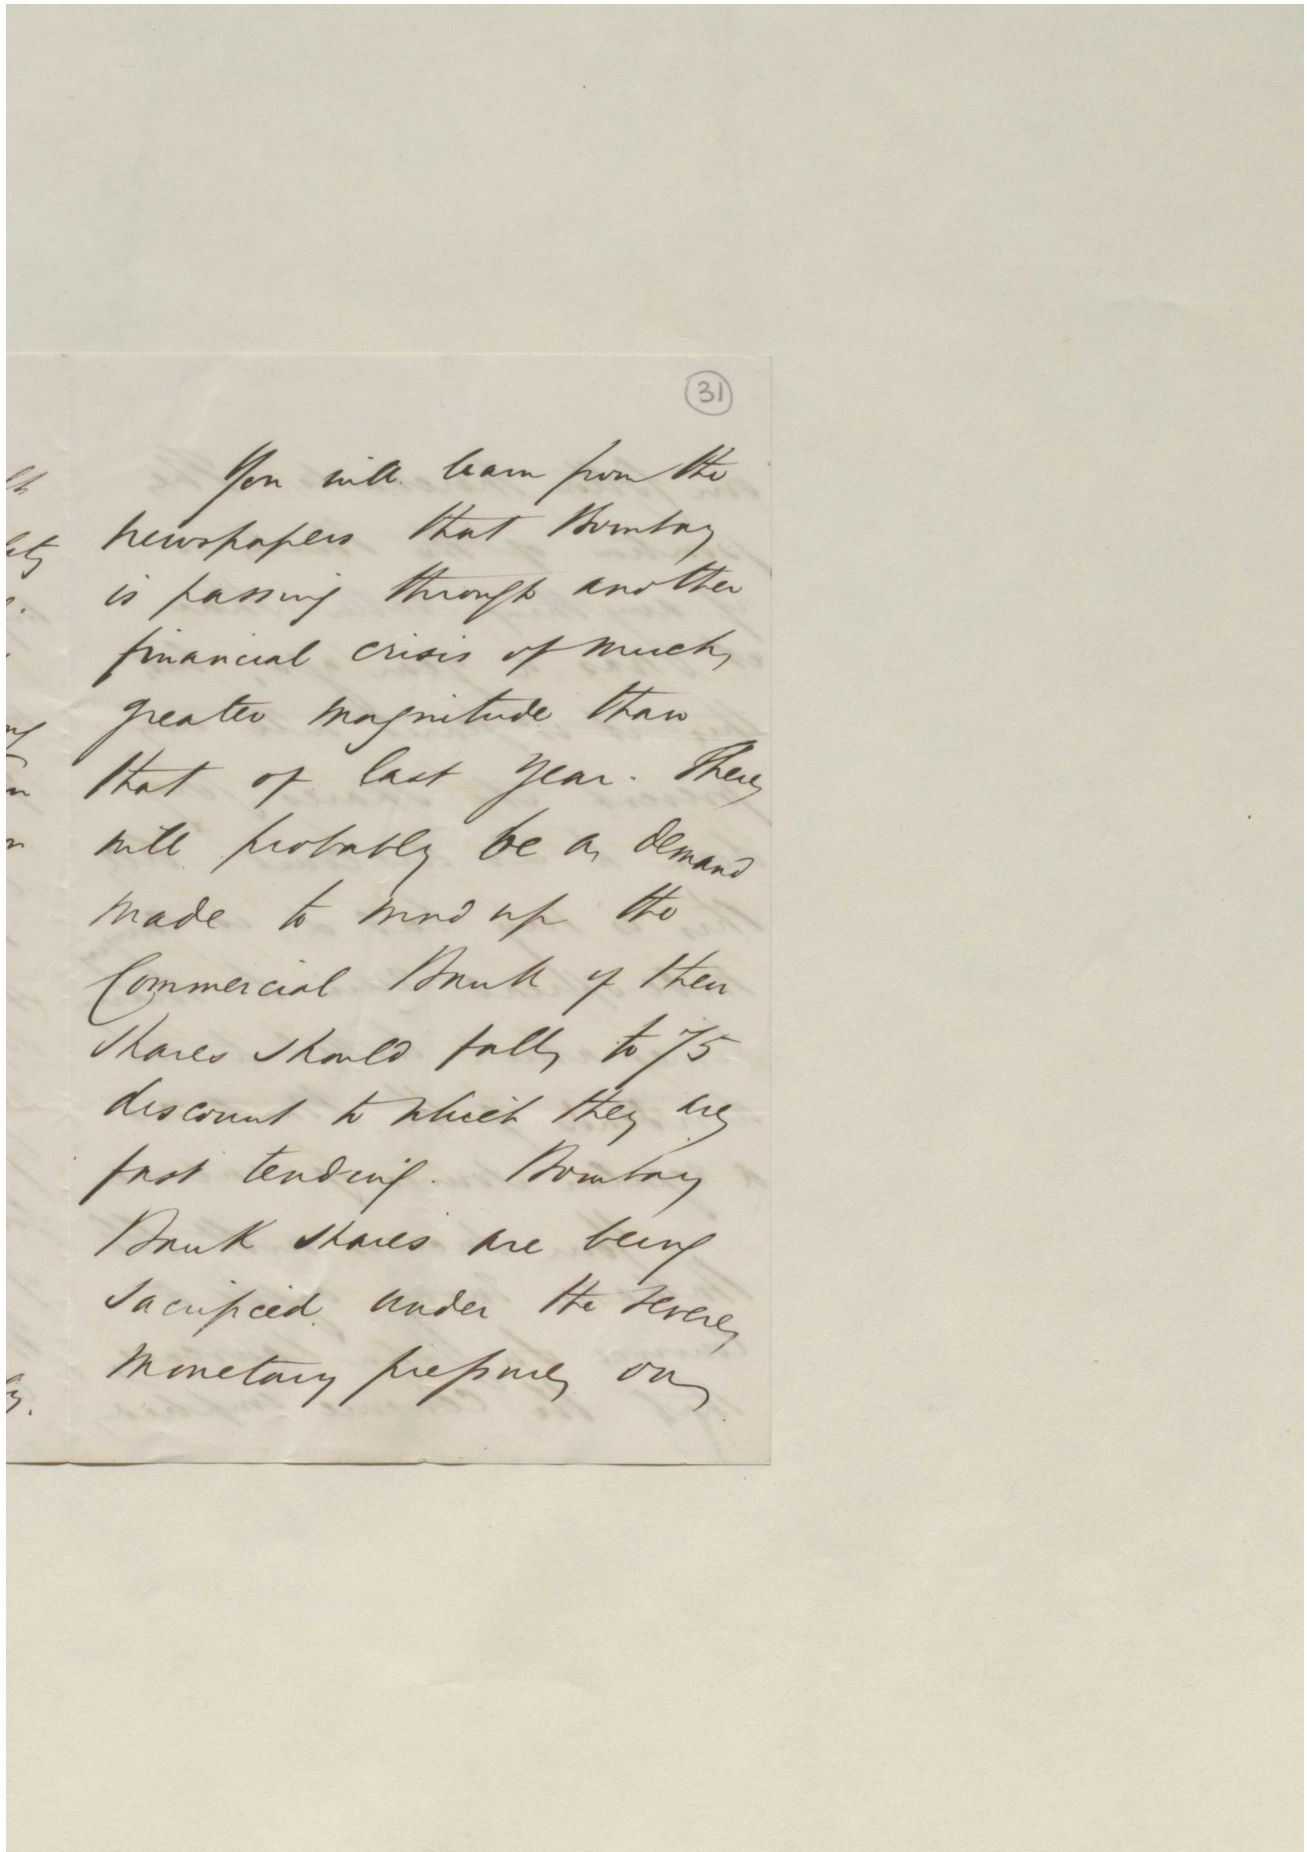 31
You will learn from the
newspapers that Bombay
is passing through another
financial crisis of much
greater magnitude than
that of last year. There
will probably be a demand
made to wind up the
Commercial Bank if their
shares should fall to 75
discount to which they are
fast tending. Bombay
Bank shares are being
sacrificed under the severe
monetary pressure on